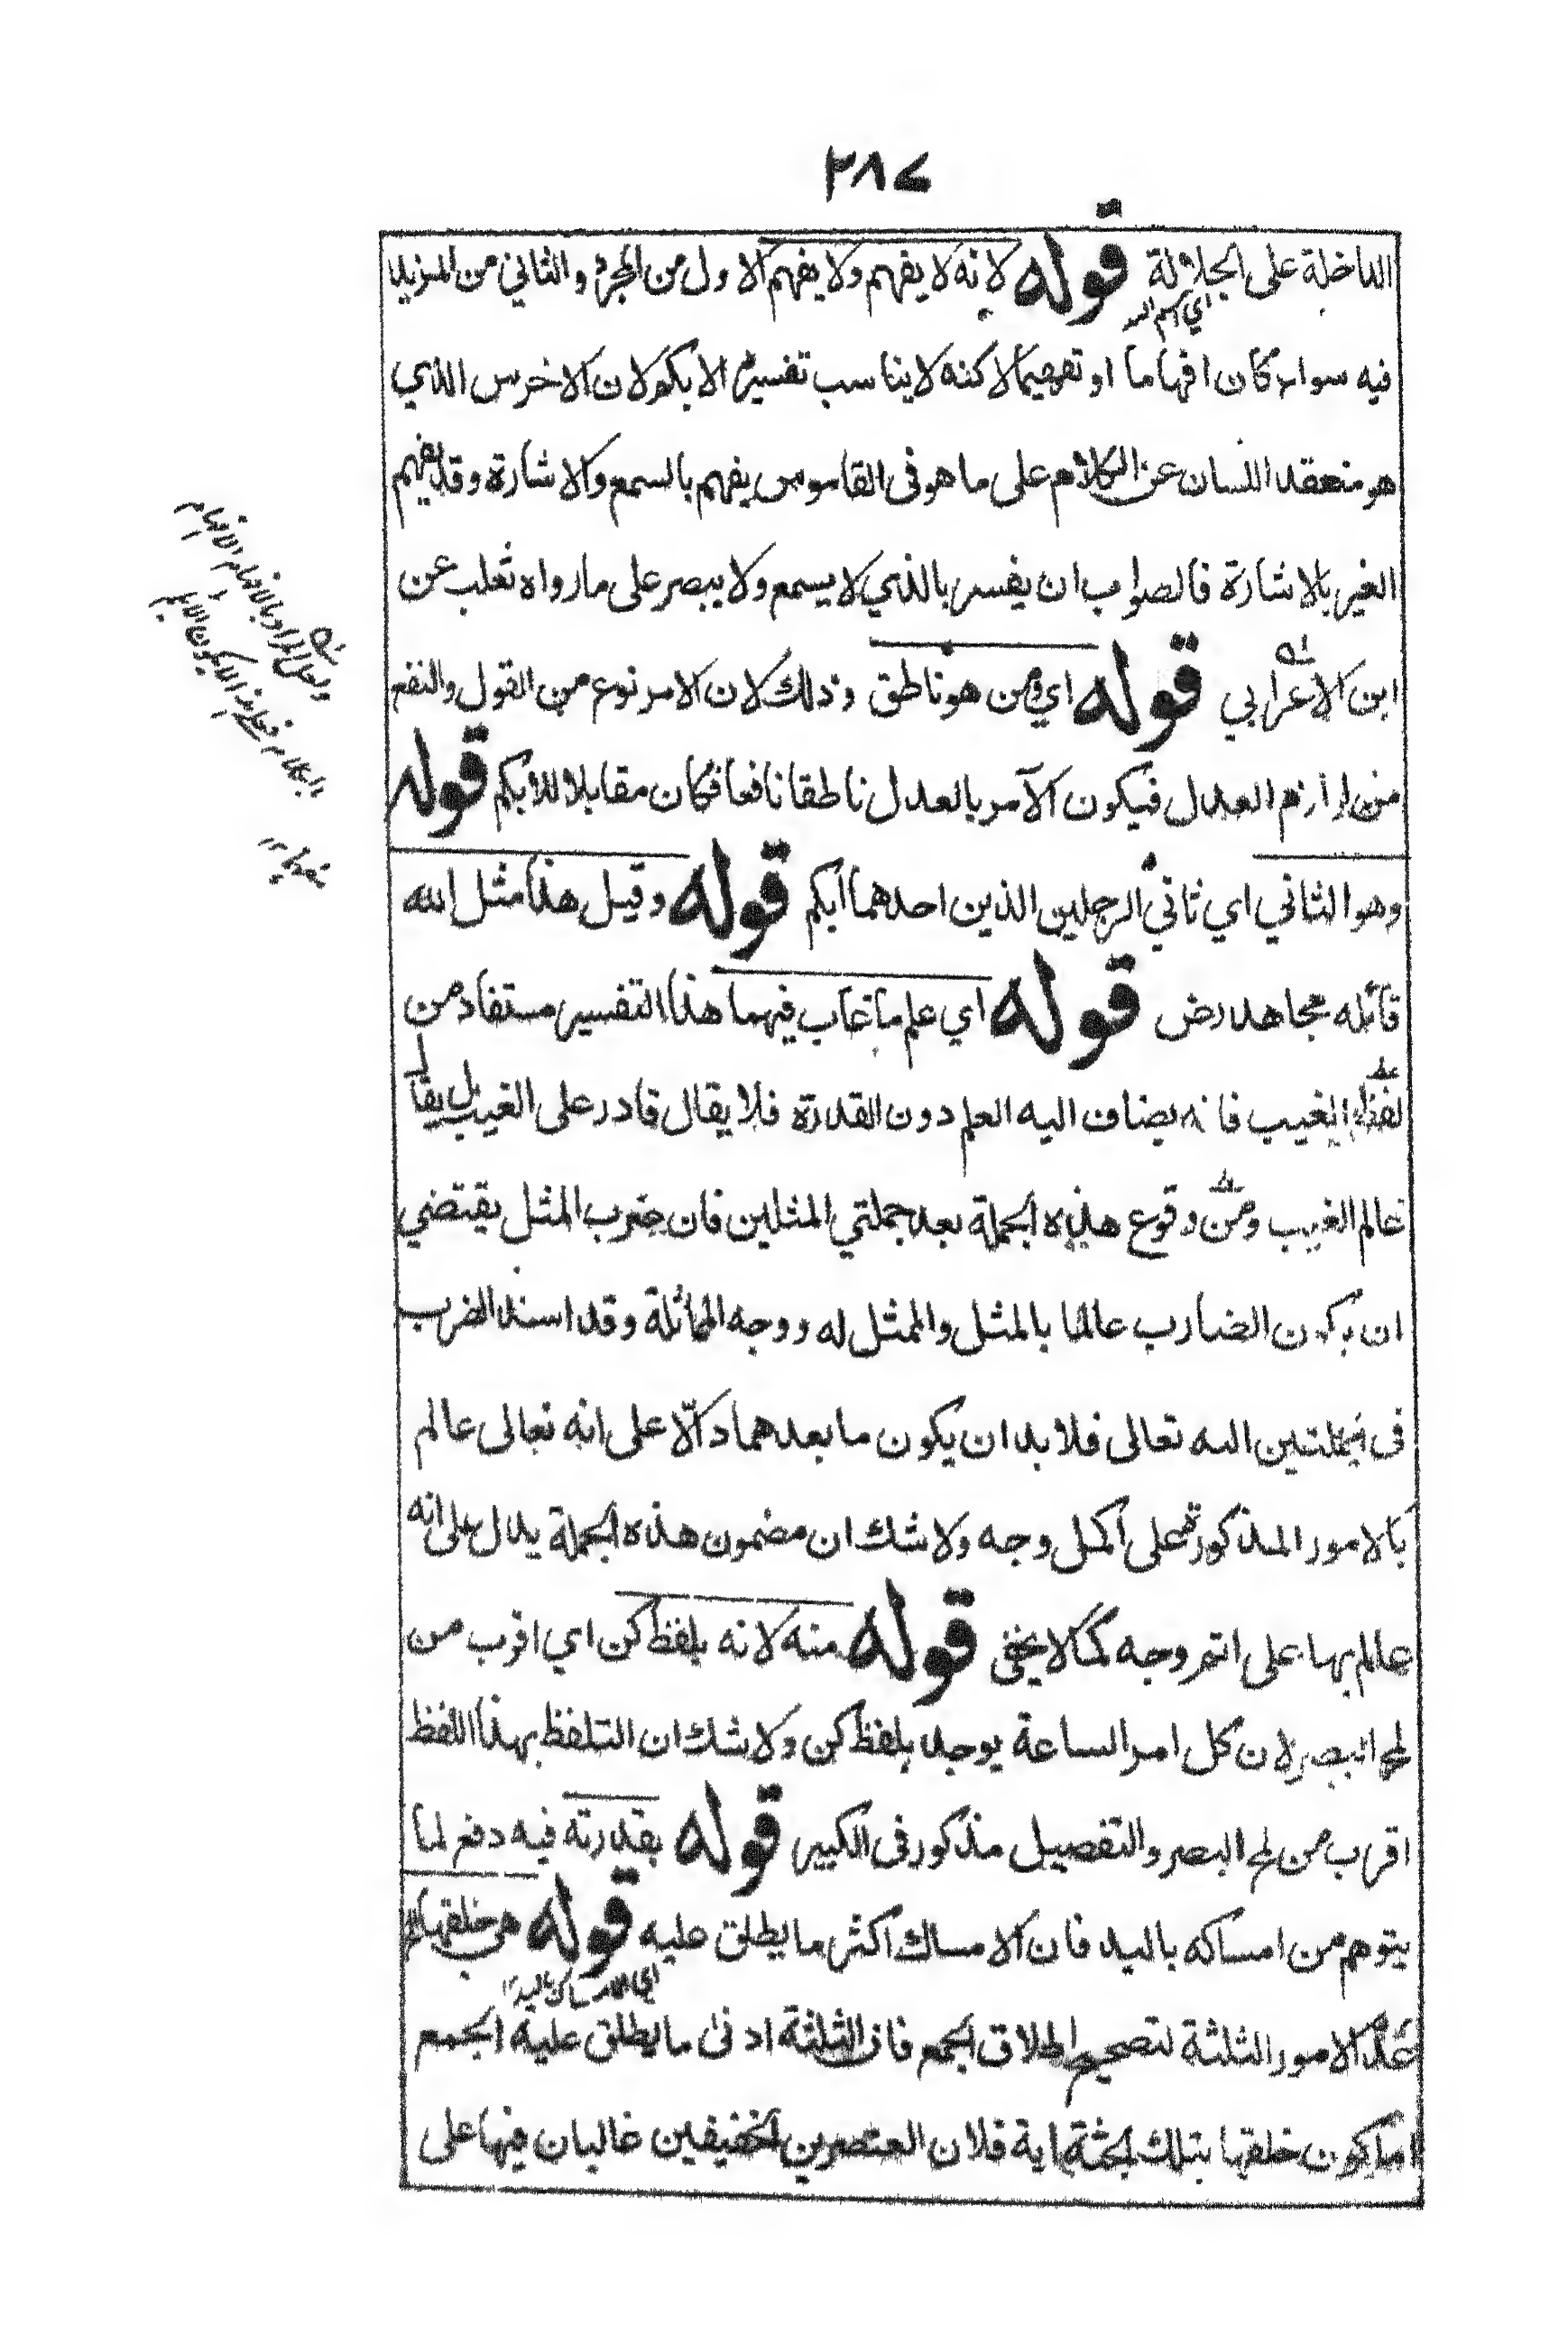 ٢٨٧
الداخلة على الجلالة قوله لانه لا يفهم ولا يفهم الاول من المجرد والثاني من المزيد
اي اسم الله
فيه سواء كان افهاما او تفهيما لاكنه لا يناسب تفسير الابكم لان الاخرس الذي
هو منعقد اللسان عن الكلام على ما هو فى القاموس يفهم بالسمع والاشارة وقد يفهم
الغير بالاشارة فالصواب ان يفسر بالذي لا يسمع ولا يبصر على ما رواه ثعلب عن
ابن الاعرابي قوله اي ومن هو ناطق وذلك لان الامر نوع من القول والنفع
من لوازم العدل فيكون الآمر بالعدل ناطقا نافعا فكان مقابلا للابكم قوله
وهو الثاني اي ثاني الرجلين الذين احدهما ابكم قوله وقيل هذا مثل الله
قائله مجاهد رض قوله اي علم ما غاب فيهما هذا التفسير مستفاد من
لفظ الغيب فانه يضاف اليه العلم دون القدرة فلا يقال قادر على الغيب بل يقال
عالم الغيب ومن وقوع هذه الجملة بعد جملتي المثلين فان ضرب المثل يقتضي
ان يكون الضارب عالما بالمثل والممثل له ووجه المماثلة وقد اسند الضرب
فى الجملتين اليه تعالى فلا بد ان يكون ما بعدهما دالّا على انه تعالى عالم
بالامور المذكورة على اكمل وجه ولا شك ان مضمون هذه الجملة يدل على انه
عالم بها على اتم وجه كما لا يخفى قوله منه لانه بلفظ كن اي اقرب من
لمح البصر لان كل امر الساعة يوجد بلفظ كن ولا شك ان التلفظ بهذا اللفظ
اقرب من لمح البصر والتفصيل مذكور فى الكبير قوله بقدرته فيه دفع لما
يتوهم من امساكه باليد فان الامساك اكثر ما يطلق عليه قوله هي خلقها
اي الامساك باليد
عد الامور الثلثة لتصحيح اطلاق الجمع فان الثلثة ادنى ما يطلق عليه الجمع
اما كون خلقها بتلك الجثة اية فلان العنصرين الخفيفين غالبان فيها على